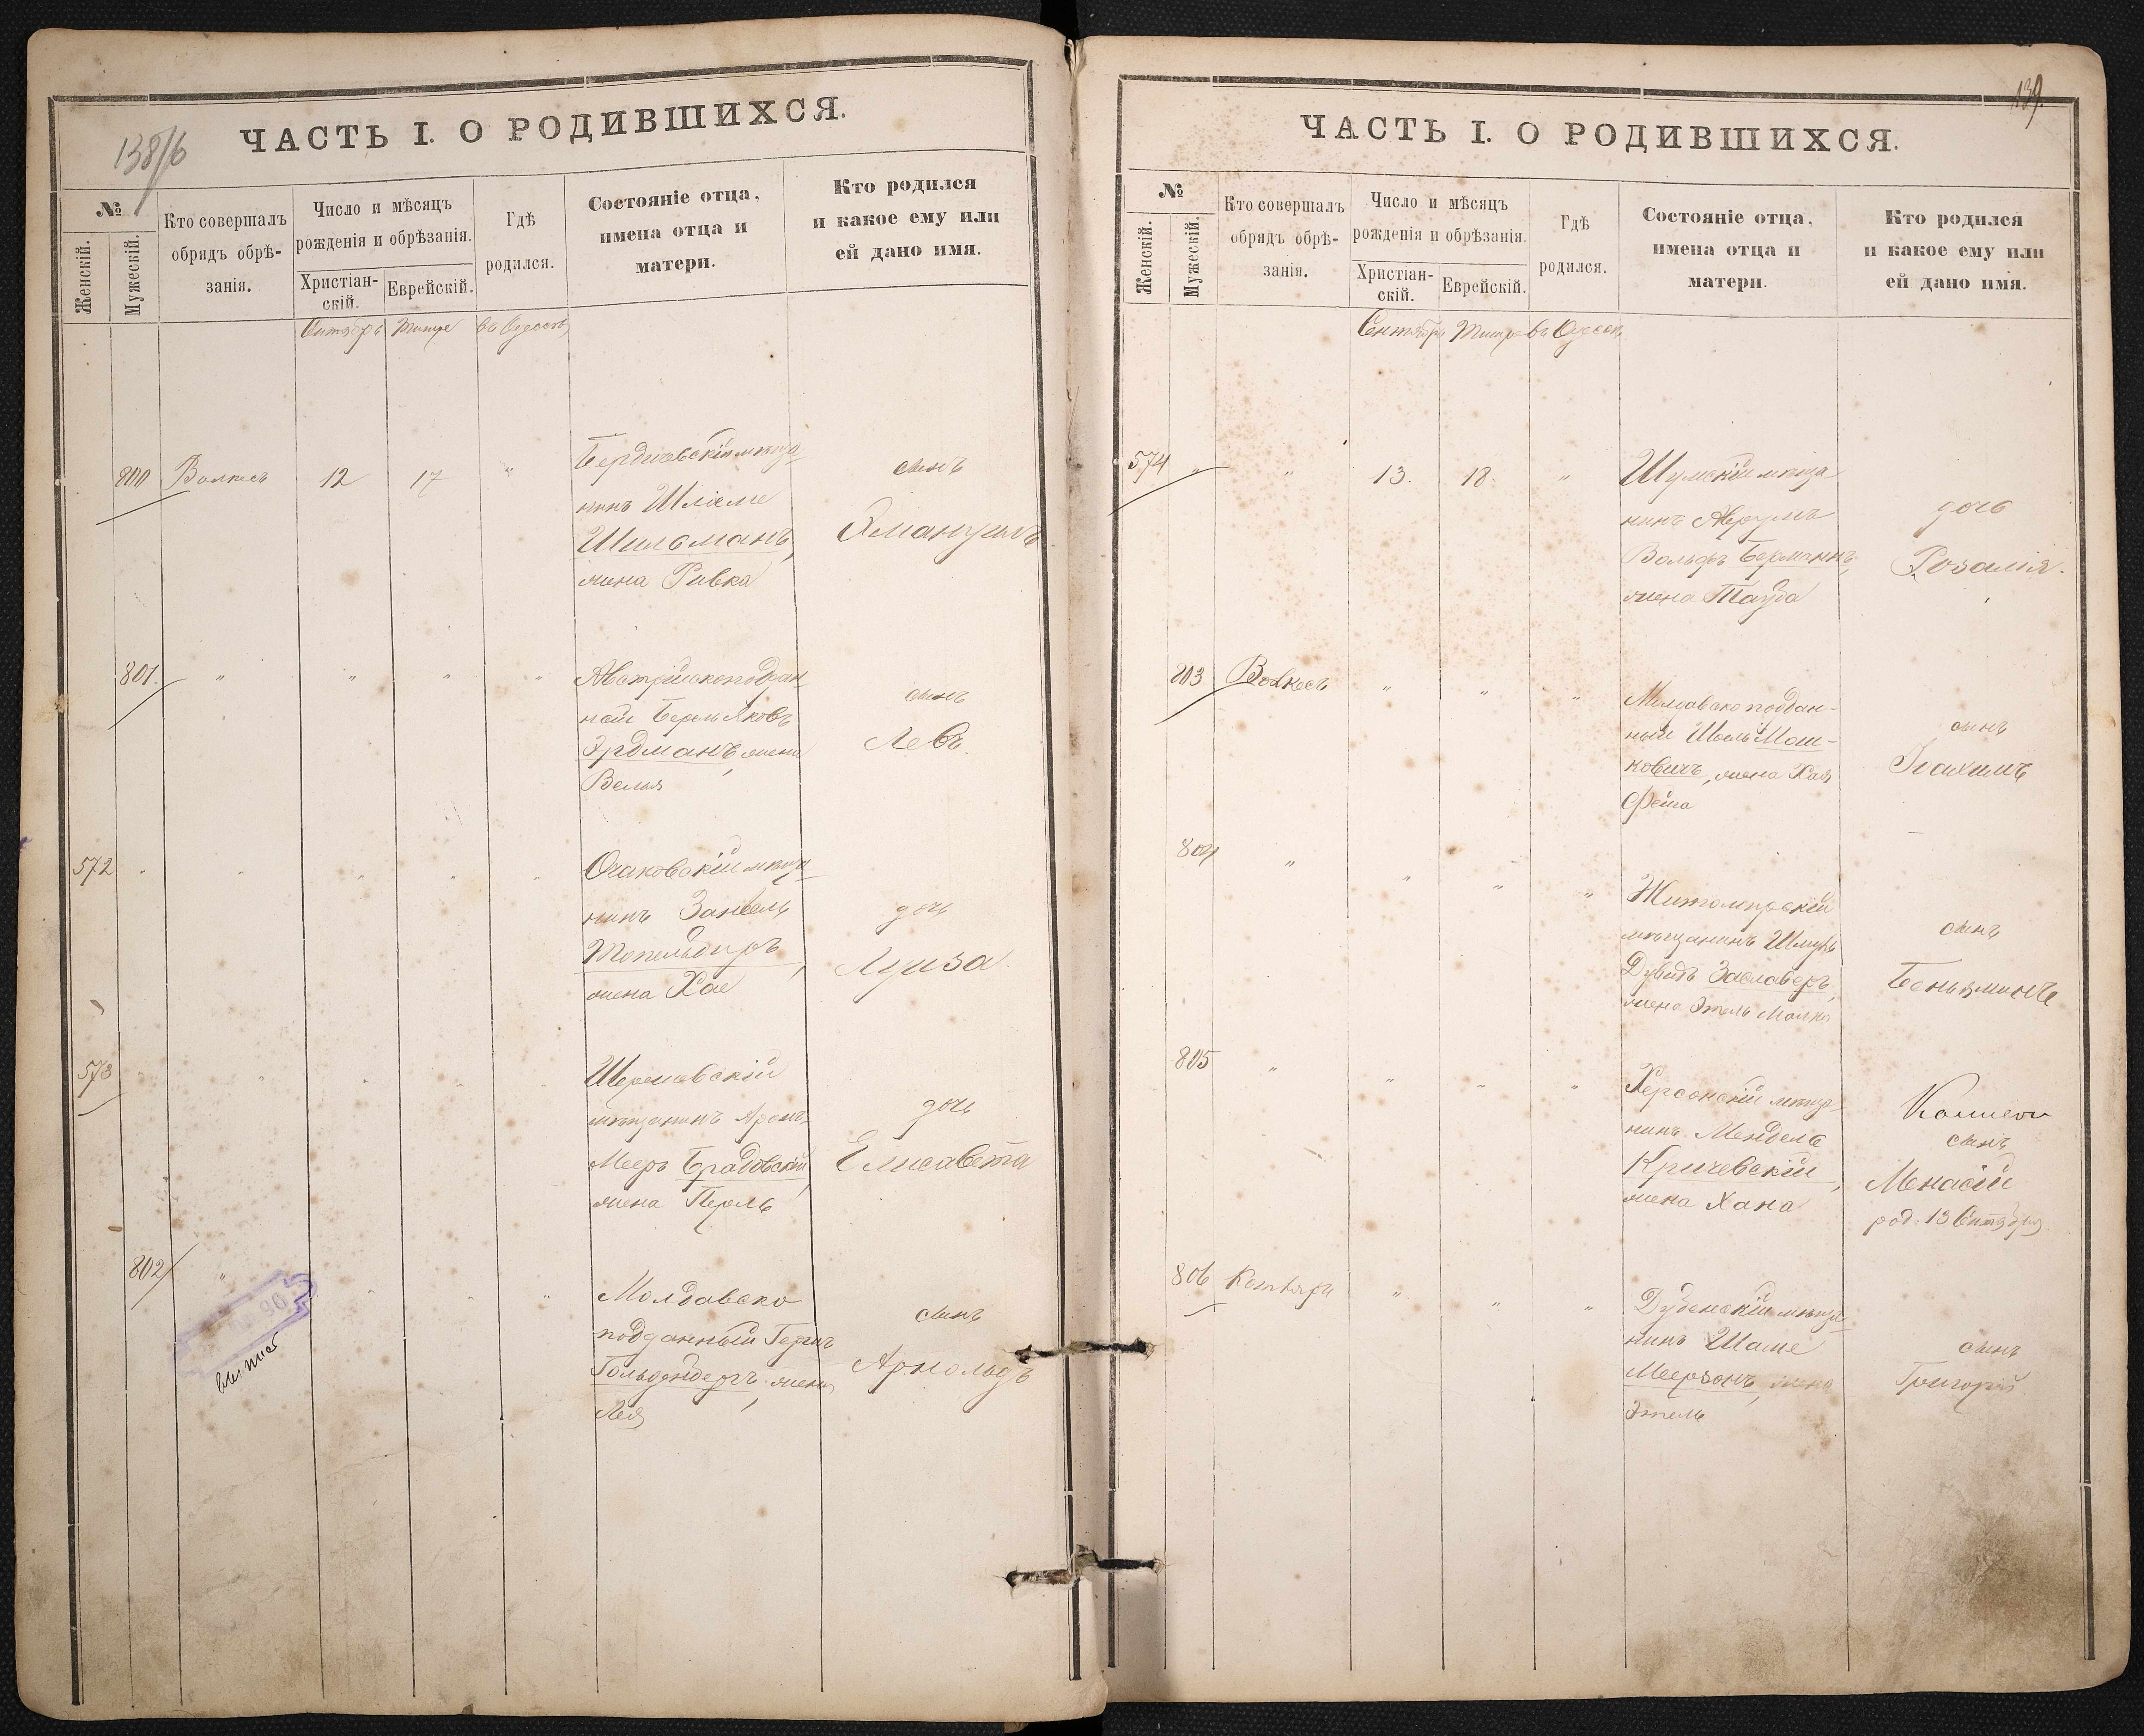 138/6
ЧАСТЬ I. О РОДИВШИХСЯ.
№
Женскій.
Мужескій.
Кто совершалъ
обрядъ обрѣ-
занія.
Число и мѣсяцъ
рожденія и обрѣзанія.
Христіан-
скій.
Еврейскій.
Гдѣ
родился.
Состояніе отца,
имена отца и
матери.
Кто родился
и какое ему или
ей дано имя.
Сентябрь Тишре въ Одессѣ
800 12 17 "
Бердичевскій мѣща-
нинъ
Шильманъ,
жена Ривка
сынъ
801. " " " "
Австрійскоподдан-
ный Берль Яковъ
Эрдманъ, жена
Велья
сынъ
Левъ.
572 " " " " "
Очаковскій мѣща-
нинъ
жена Хае
дочь
Луиза
573 " " " " "
мѣщанинъ Аронъ
Мееръ Бродовскій,
жена Перль
дочь
Елисавета
802 " " " "
Молдавско
подданный Герш
Гольденбергъ, жена
Лея
сынъ
Арнольдъ
139.
ЧАСТЬ I. О РОДИВШИХСЯ.
№
Женскій.
Мужескій.
Кто совершалъ
обрядъ обрѣ-
занія.
Число и мѣсяцъ
рожденія и обрѣзанія.
Христіан-
скій.
Еврейскій.
Гдѣ
родился.
Состояніе отца,
имена отца и
матери.
Кто родился
и какое ему или
ей дано имя.
Сентябрь Тишре въ Одессѣ
574 " " 13. 18. "
Шумскій мѣща-
нинъ Аврумъ
Вольфъ Берманъ,
жена Тауба
дочь
Розалія.
803 " " "
Молдавскоподдан-
ный Мош-
ковичъ, жена Хая
Фейга
сынъ
804 " " " "
Житомирскій
мѣщанинъ Шмуль
Дувидъ Заславеръ,
жена Этель Малка
сынъ
Беньяминъ
805 " " " "
Херсонскій мѣща-
нинъ Мендель
Кричевскій,
жена Хана
сынъ
Менасій
род. 13 Сентября
806 " " "
Дубенскій мѣща-
нинъ
Меерзонъ, жена
Этель
сынъ
Григорій